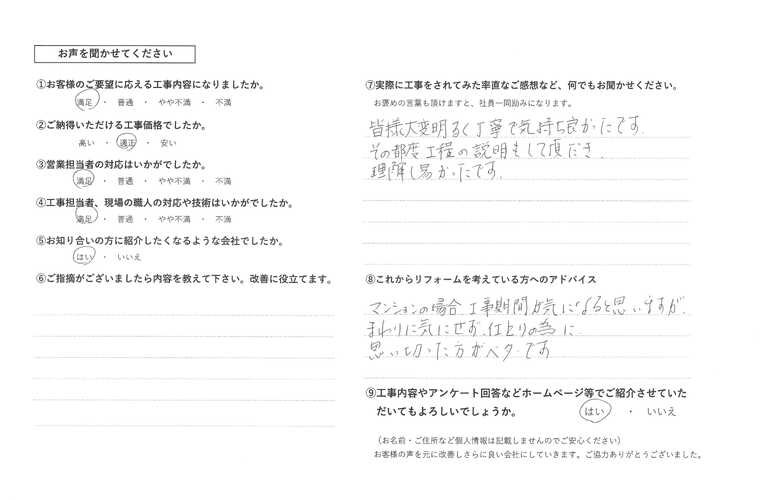 お声を聞かせてください
①お客様のご要望に応える工事内容になりましたか。
満足 ・ 普通 ・ やや不満 ・ 不満
②ご納得いただける工事価格でしたか。
高い ・ 適正 ・ 安い
③営業担当者の対応はいかがでしたか。
満足 ・ 普通 ・ やや不満 ・ 不満
④工事担当者、現場の職人の対応や技術はいかがでしたか。
満足 ・ 普通 ・ やや不満 ・ 不満
⑤お知り合いの方に紹介したくなるような会社でしたか。
はい ・ いいえ
⑥ご指摘がございましたら内容を教えて下さい。改善に役立てます。
⑦実際に工事をされてみた率直なご感想など、何でもお聞かせください。
お褒めの言葉も頂けますと、社員一同励みになります。
皆様大変明るく丁寧で気持ち良かったです。
その都度工程の説明もして頂だき、
理解し易かったです。
⑧これからリフォームを考えている方へのアドバイス
マンションの場合、工事期間が気になると思いますが、
まわりに気にせず、仕上りの為に
思い切った方がベターです
⑨工事内容やアンケート回答などホームページ等でご紹介させていた
だいてもよろしいでしょうか。 はい ・ いいえ
（お名前・ご住所など個人情報は記載しませんのでご安心ください）
お客様の声を元に改善しさらに良い会社にしていきます。ご協力ありがとうございました。